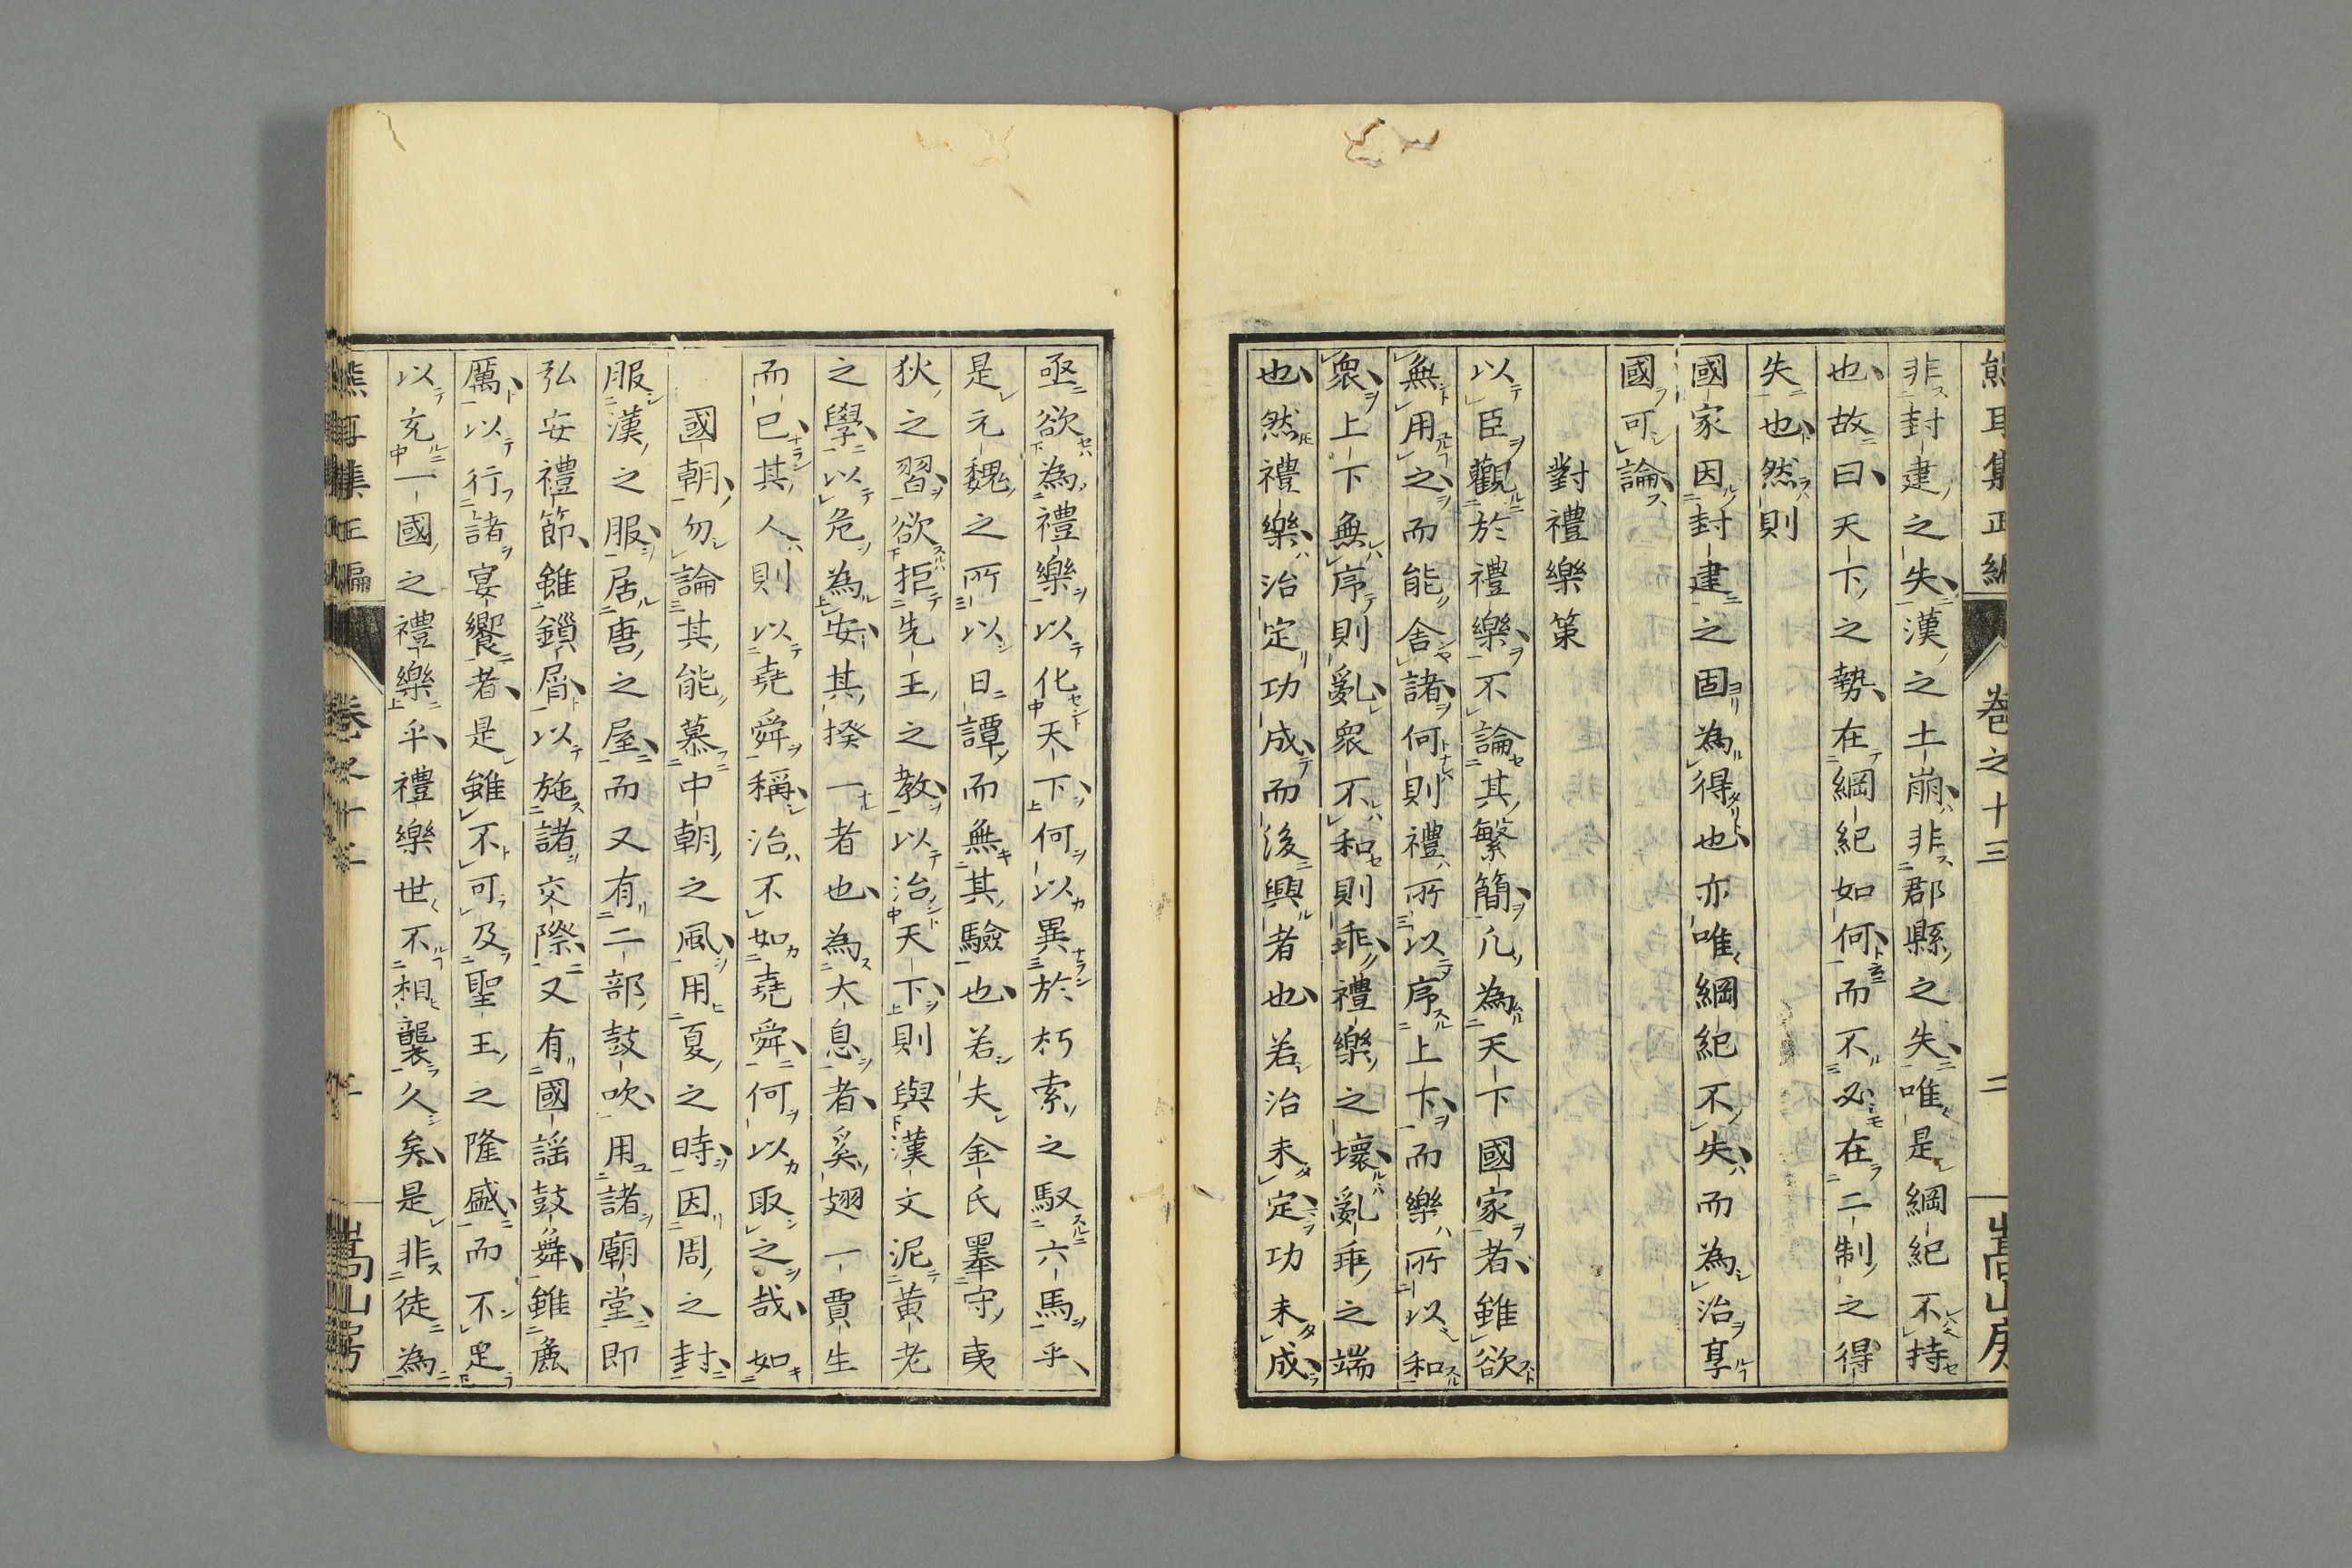 熊耳集正編 卷之十三 二 嵩山房
非封建之失漢之土崩非郡縣之失唯是綱紀不持
也故曰天下之勢在綱紀如何而不必在二制之得
失也然則
國家因封建之固為得也亦唯綱紀不失而為治享
國可論
對禮樂策
以臣觀於禮樂不論其繁簡凡為天下國家者雖欲
無用之而能舍諸何則禮所以序上下而樂所以和
衆上下無序則亂衆不和則乖禮樂之壞亂乖之端
也然禮樂治定功成而後興者也若治未定功未成
亟欲為禮樂以化天下何以異於朽索之馭六馬乎
是元魏之所以日譚而無其驗也若夫金氏墨守夷
狄之習欲拒先王之教以治天下則與漢文泥黃老
之學以危為安其揆一者也為大息者奚翅一賈生
而已其人則以堯舜稱治不如堯舜何以取之哉如
國朝勿論其能慕中朝之風用夏之時因周之封
服漢之服居唐之屋而又有二部鼓吹用諸廟堂即
弘安禮節雖鎖屑以施諸交際又有國謡鼓舞雖麁
厲以行諸宴饗者是雖不可及聖王之隆盛而不足
以充一國之禮樂乎禮樂世不相襲久矣是非徒為